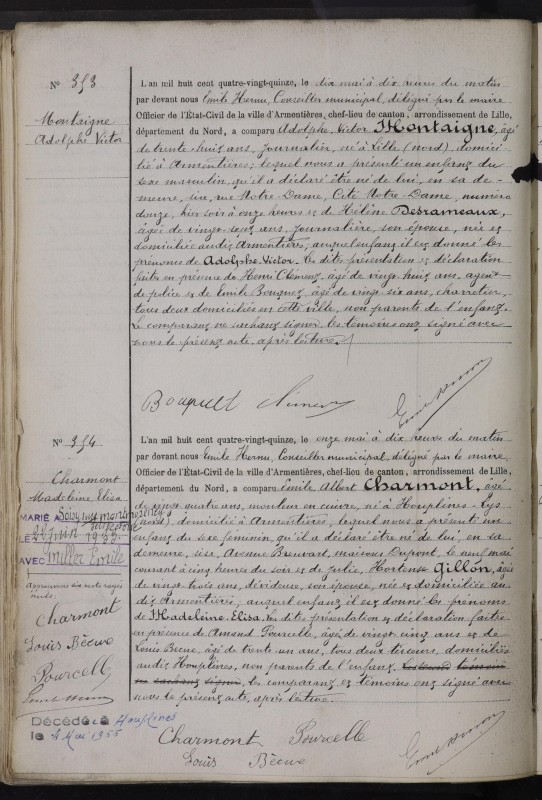 N° 353
Montaigne
Adolphe Victor
L'an mil huit cent quatre-vingt-quinze, le dix mai à dix heures du matin
par devant nous Emile Hernu, Conseiller municipal, délégué par le maire
Officier de l'État-Civil de la ville d'Armentières, chef-lieu de canton, arrondissement de Lille,
département du Nord, a comparu Adolphe Victor Montaigne, âgé
de trente huit ans, journalier, né à Lille (nord), domici-
lié à Armentières; lequel nous a présenté un enfant du
sexe masculin, qu'il a déclaré être né de lui, en sa de-
meure, sise, rue Notre-Dame, Cité Notre-Dame, numéro
douze, hier soir à onze heures et de Hélène Desrameaux,
âgée de vingt-sept ans, journalière, son épouse, née et
domiciliée audit Armentières; auquel enfant il est donné les
prénoms de Adolphe-Victor. Les dites présentation et déclaration
faites en présence de Henri Clément, âgé de vingt-huit ans, agent
de police et de Emile Bouquet, âgé de vingt-six ans, charretier,
tous deux domiciliés en cette ville, non parents de l'enfant.
Le comparant ne sachant signer les témoins ont signé avec
nous le présent acte, après lecture.
Bouquet Clément Emile Hernu
N° 354
Charmont
Madeleine Elisa
MARIÉ À Soisy sous Montmorency
LE 24 Juin 1932
AVEC Emile
Charmont
Louis Bécue
Pourcelle
Emile Hernu
Décédée à Houplines
le 4 Mai 1955
L'an mil huit cent quatre-vingt-quinze, le onze mai à dix heures du matin
par devant nous Emile Hernu, Conseiller municipal, délégué par le maire
Officier de l'État-Civil de la ville d'Armentières, chef-lieu de canton, arrondissement de Lille,
département du Nord, a comparu Emile Albert Charmont, âgé
de vingt quatre ans, mouleur en cuivre, né à Houplines-Lys
(nord), domicilié à Armentières, lequel nous a présenté un
enfant du sexe féminin, qu'il a déclaré être né de lui, en sa
demeure, sise, Avenue Breuvart, maisons Dupont, le neuf mai
courant à cinq heures du soir et de Julie, Hortense Gillon, âgée
de vingt-trois ans, dévideuse, son épouse, née et domiciliée au
dit Armentières; auquel enfant il est donné les prénoms
de Madeleine-Elisa. Les dites présentation et déclaration faites
en présence de Amand Pourcelle, âgé de vingt cinq ans et de
Louis Bécue, âgé de trente un ans, tous deux tisseurs, domiciliés
audit Houplines, non parents de l'enfant.
ne sachant signer, les comparant et témoins ont signé avec
nous le présent acte, après lecture.
Charmont Pourcelle Emile Hernu
Louis Bécue